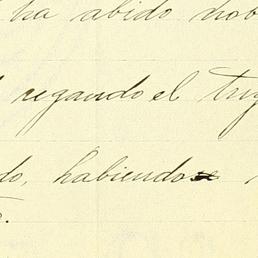 ha abido nob
regando el trig
do, habiendose